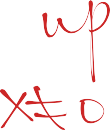 up
x≠0